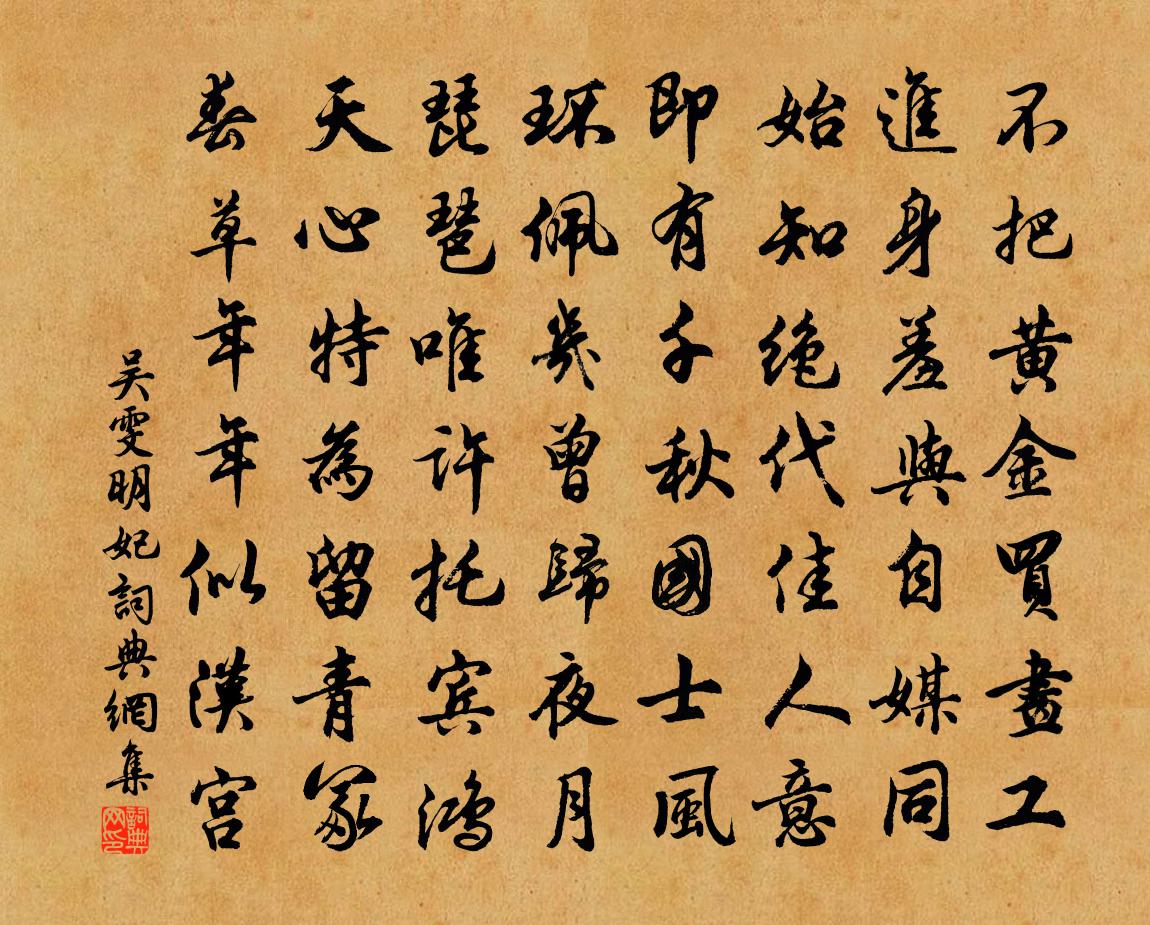 不把黃金買畫工
進身羞與自媒同
始知絕代佳人意
即有千秋國士風
環佩幾曾歸夜月
琵琶唯許托賓鴻
天心特為留青冢
春草年年似漢宮
吳雯明妃詞典網集
詞典网印